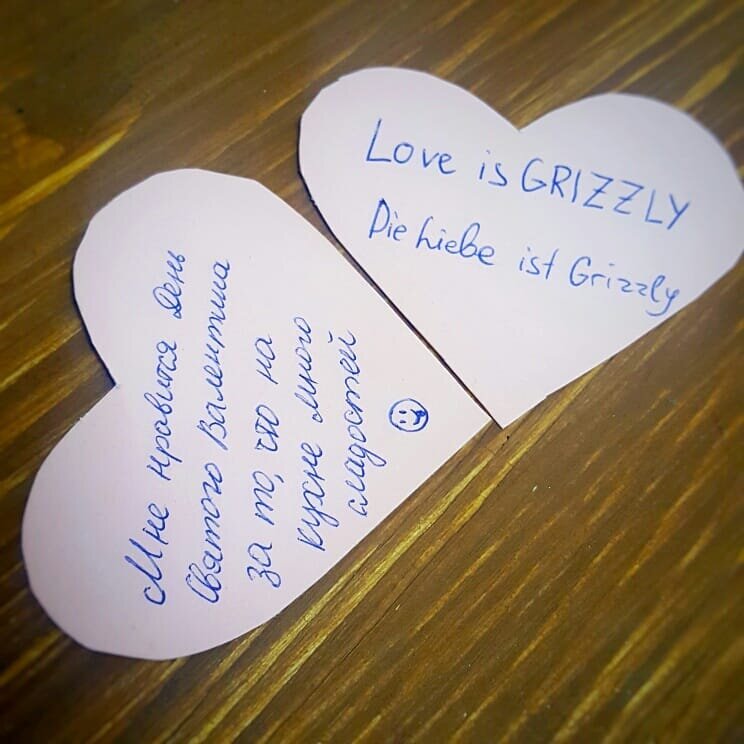 Мне нравится День
Святого Валентина
за то, что на
кухне много
сладостей
Love is GRIZZLY
Die Liebe ist Grizzly